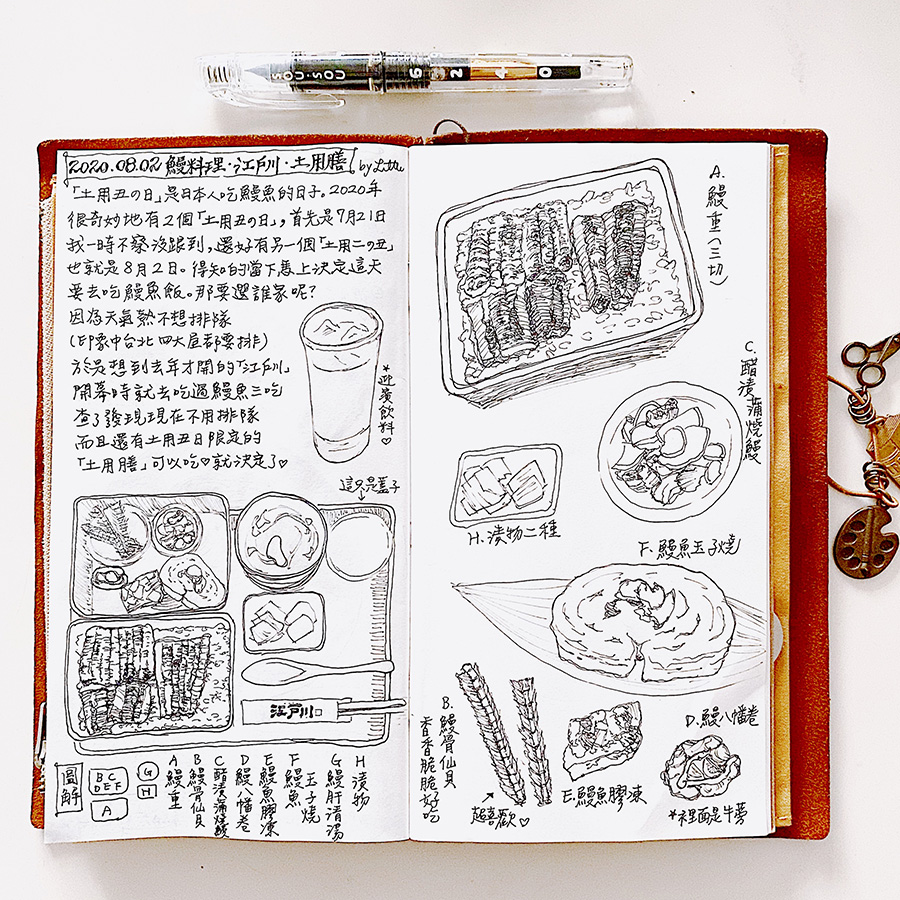 SOU·SOU
6 2 4 0
2020.08.02 鰻料理·江戶川·土用膳 by Lotte
「土用丑の日」是日本人吃鰻魚的日子。2020年
很奇妙地有2個「土用丑の日」，首先是7月21日
我一時不察沒跟到，還好有另一個「土用二の丑」
也就是8月2日。得知的當下馬上決定這天
要去吃鰻魚飯。那要選誰家呢？
因為天氣熱不想排隊
(印象中台北四大屋都要排)
於是想到去年才開的「江戶川」
開幕時就去吃過鰻魚三吃
查了發現現在不用排隊
而且還有土用丑日限定的
「土用膳」可以吃♡就決定了♡
*迎賓飲料♡
這只是蓋子
江戶川
圖解
B C
D E F
A
G
H
A 鰻重
B 鰻骨仙貝
C 醋漬蒲燒鰻
D 鰻八幡卷
E 鰻魚膠凍
F 鰻魚玉子燒
G 鰻肝清湯
H 漬物
A.鰻重(三切)
C.醋漬蒲燒鰻
H.漬物二種
F.鰻魚玉子燒
B.鰻骨仙貝
香香脆脆好吃
超喜歡♡
E.鰻魚膠凍
D.鰻八幡卷
*裡面是牛蒡